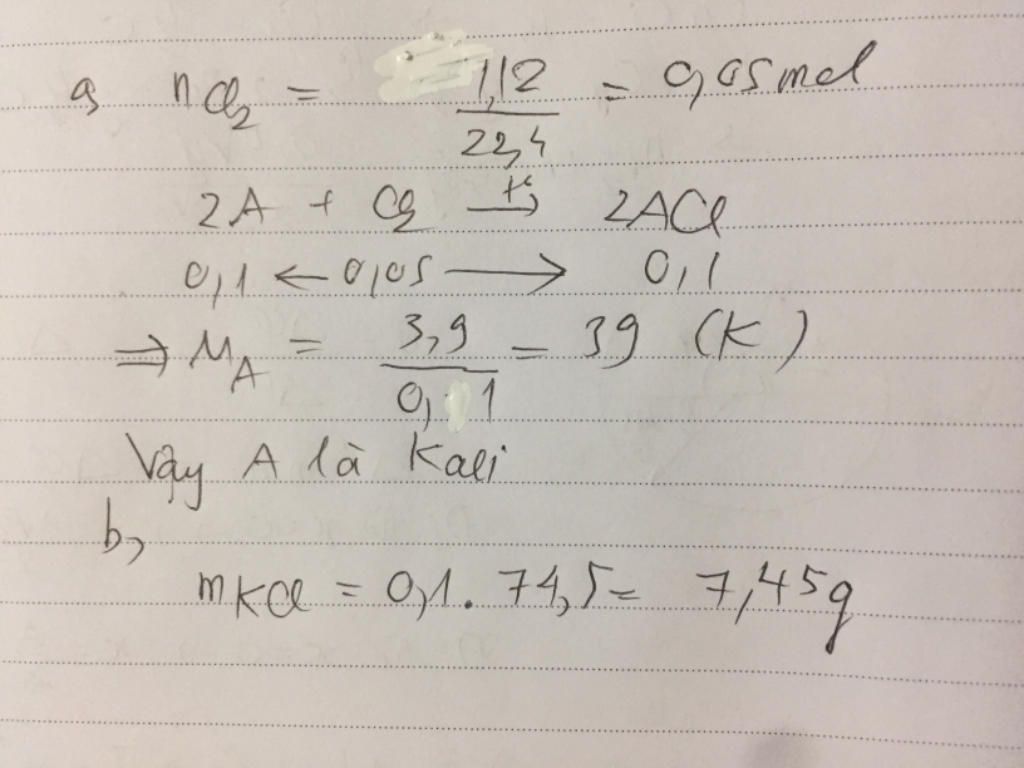 a, nCl₂ = 1,12/22,4 = 0,05 mol
2A + Cl₂ –t°→ 2ACl
0,1 ← 0,05 → 0,1
⇒ MA = 3,9/0,1 = 39 (K)
Vậy A là Kali
b,
mKCl = 0,1. 74,5 = 7,45g